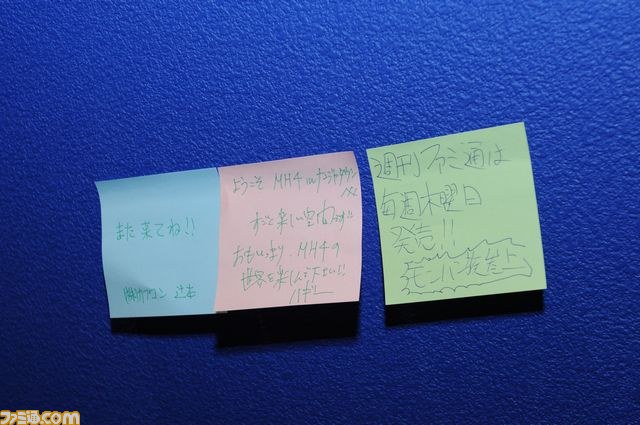 また来てね!!
㈱カプコン 辻本
ようこそ MH4 inナンジャタウン
へ
すごく楽しい空間です!!
おもいっきり、MH4の
世界を楽しんで下さい!!
週刊ファミ通は
毎週木曜日
発売!!
モンハン発売上
ファミ通.com